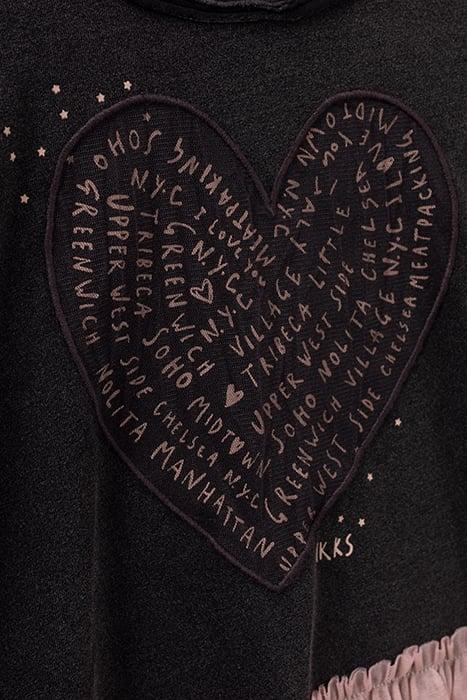 SOHO MEATPAKING
GREENWICH NOLITA MANHATTAN
UPPER WEST SIDE CHELSEA N.Y.C
TRIBECA SOHO MIDTOWN
N.Y.C GREENWICH
N.Y.C
VILLAGE
TRIBECA LITTLE
UPPER WEST SIDE
SOHO NOLITA CHELSEA
GREENWICH VILLAGE N.Y.C I LOVE YOU
UPPER WEST SIDE CHELSEA MEATPACKING MIDTOWN
IKKS